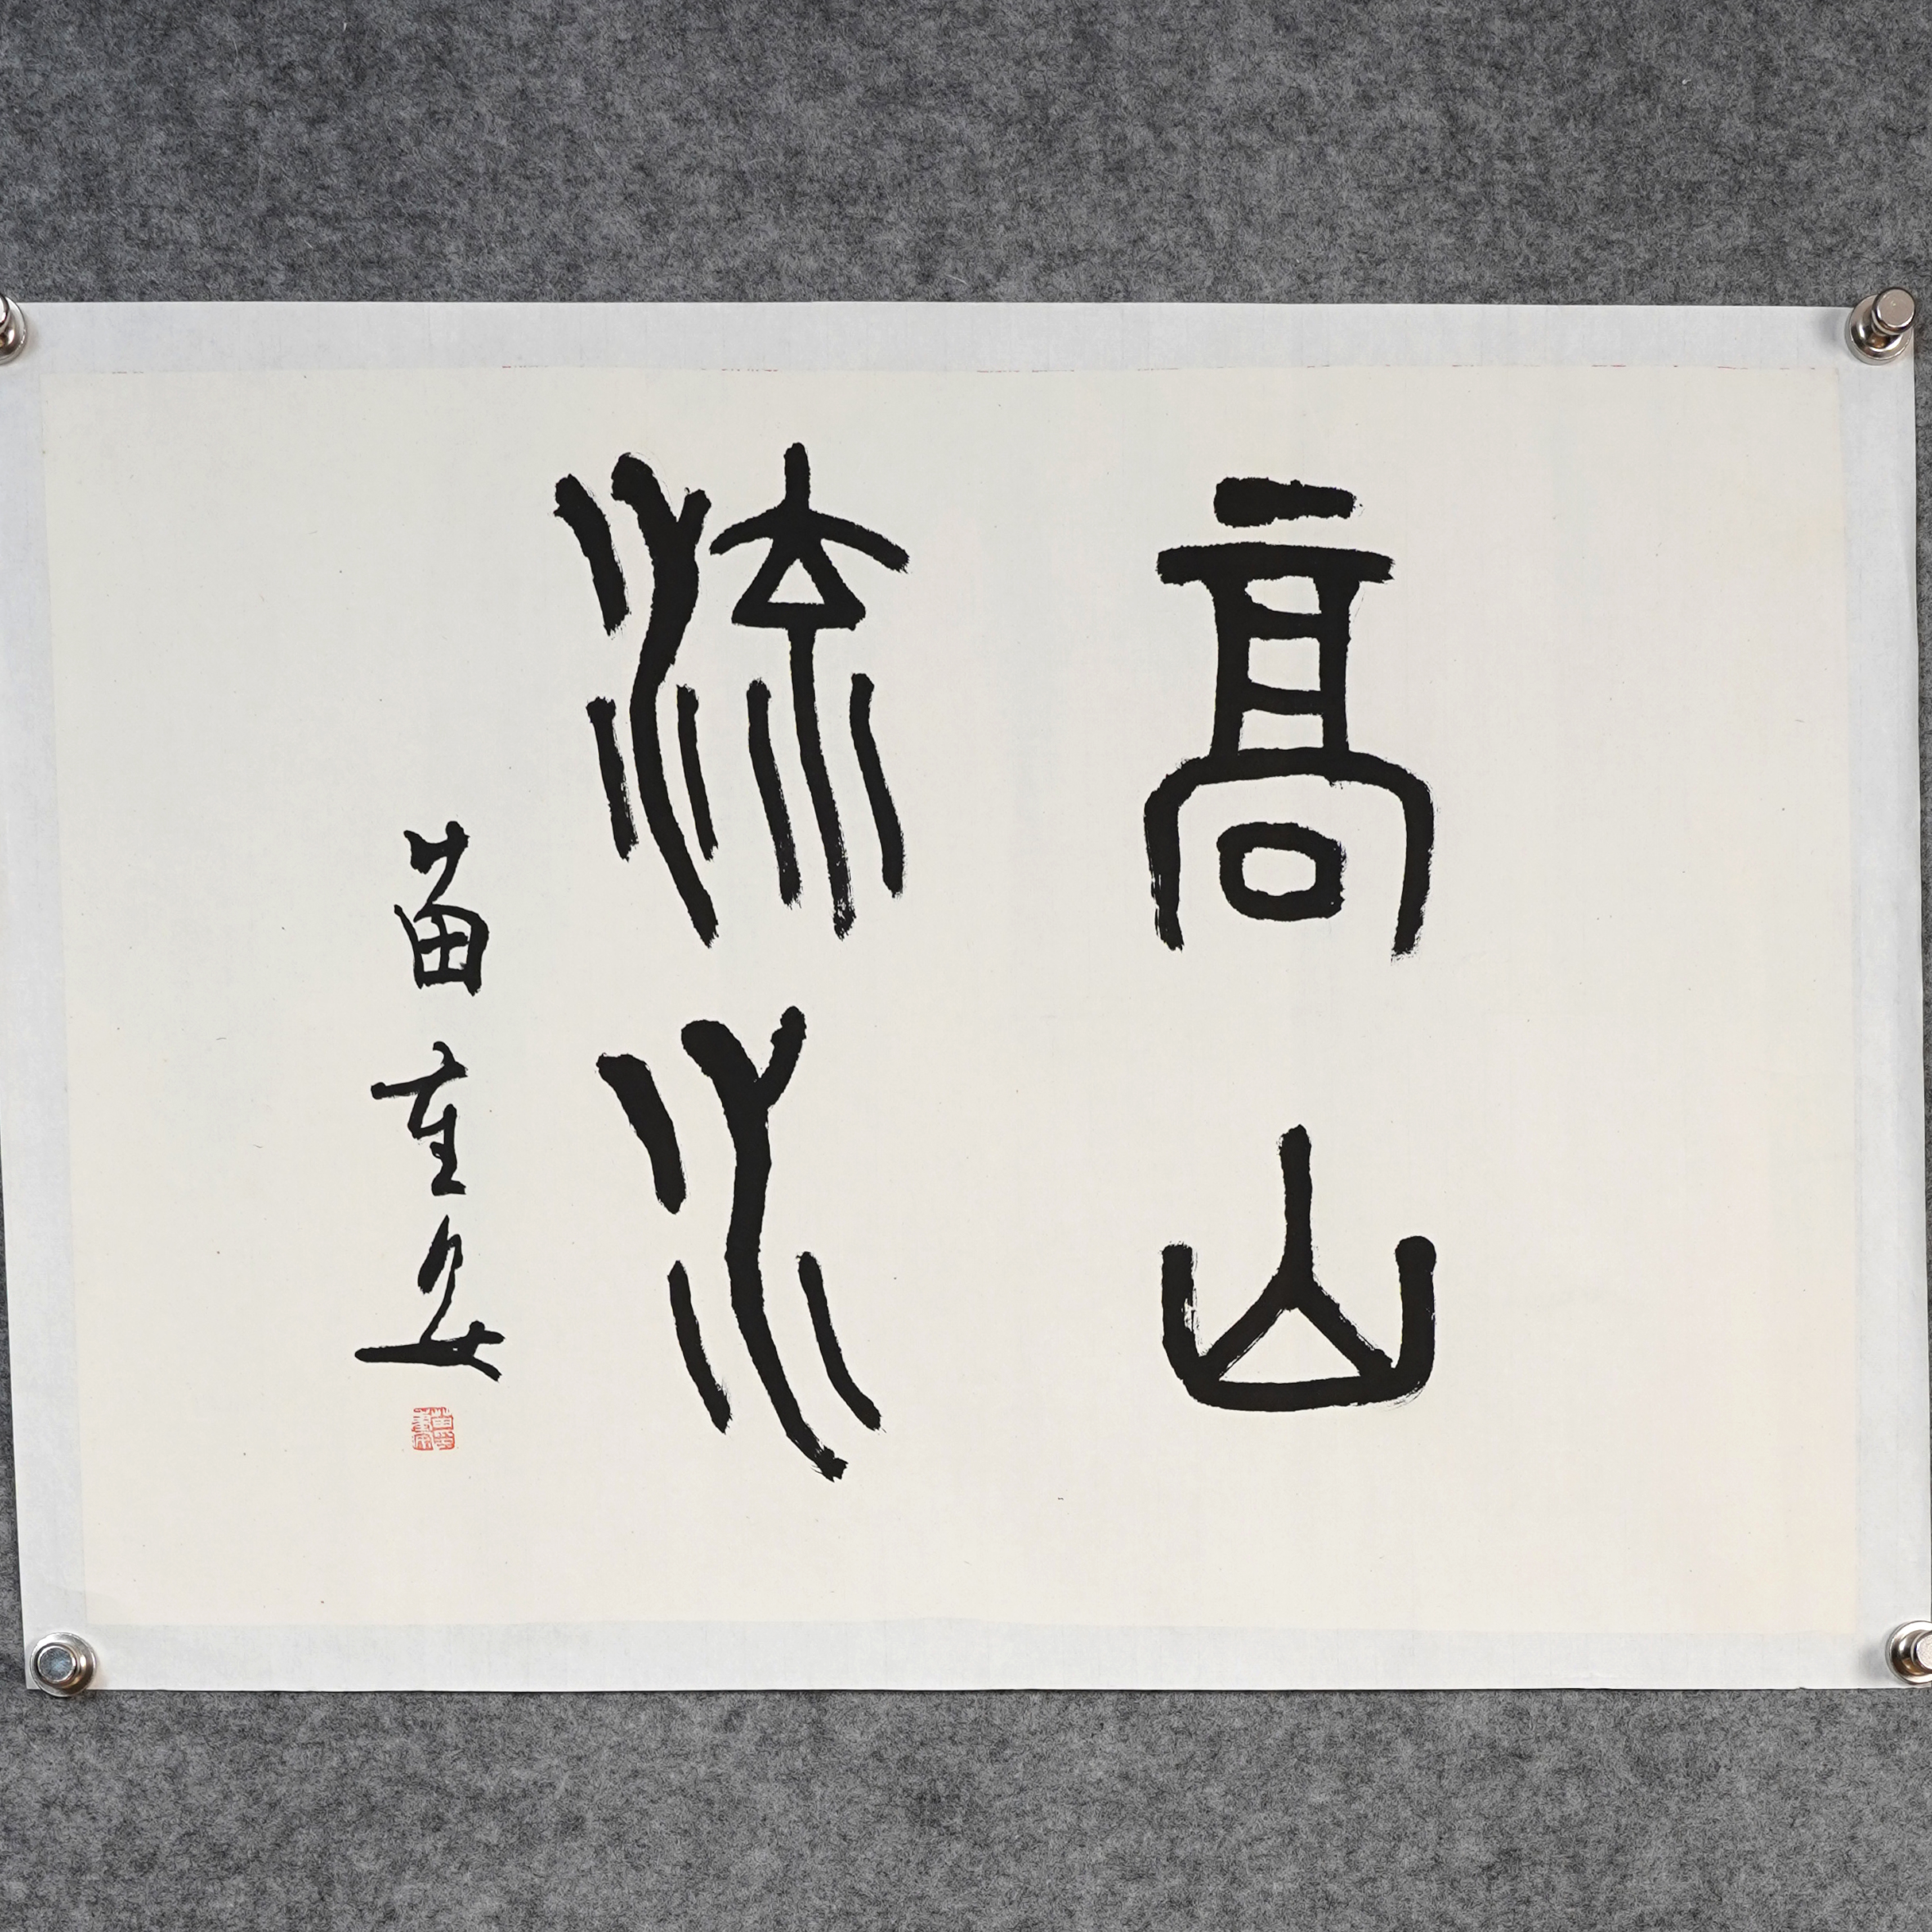 高山
流水
苗重安